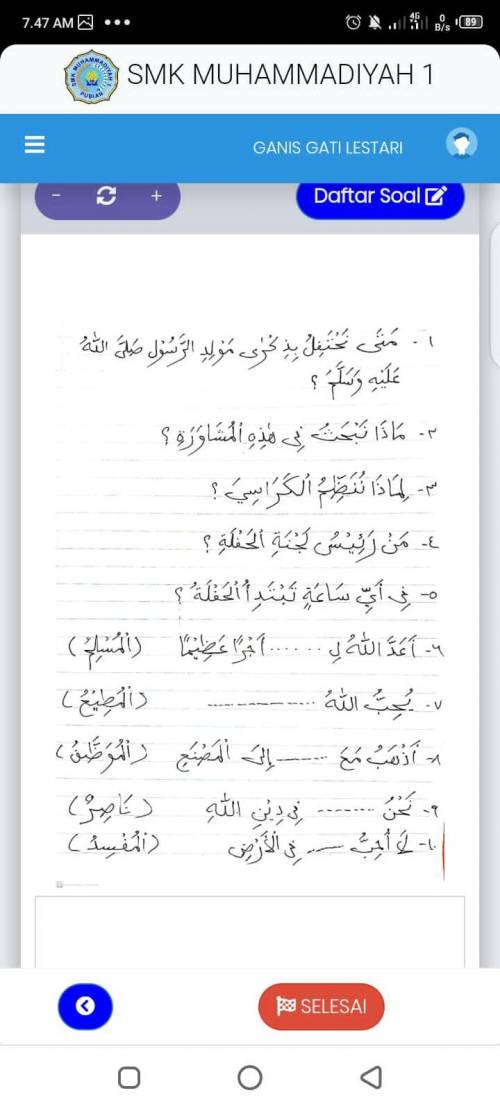 7.47 AM
4G
0 B/s
89
SMK MUHAMMADIYAH 1
GANIS GATI LESTARI
- +
Daftar Soal
١- مَتَى نَحْتَفِلُ بِذِكْرَى مَوْلِدِ الرَّسُوْلِ صَلَّى اللهُ
عَلَيْهِ وَسَلَّمَ ؟
٢- مَاذَا نَبْحَثُ فِى هٰذِهِ الْمُشَاوَرَةِ ؟
٣- لِمَاذَا نُنَظِّمُ الْكَرَاسِيَ ؟
٤- مَنْ رَئِيْسُ لَجْنَةِ الحَفْلَةِ ؟
٥- فِى أَيِّ سَاعَةٍ تَبْتَدِأُ الْحَفْلَةُ ؟
٦- أَعَدَّ اللهُ لِ ...... أَجْرًا عَظِيْمًا (الْمُسْلِمُ)
٧- يُحِبُّ اللهُ ------------ (الْمُطِيْعُ)
٨- أَذْهَبُ مَعَ ------ إِلَى الْمَصْنَعِ (الْمُوَظَّفُ)
٩- نَحْنُ ------- فِى دِيْنِ اللهِ (نَاصِرٌ)
١٠- لَا أُحِبُّ ---- فِى الْأَرْضِ (الْمُفْسِدُ)
SELESAI